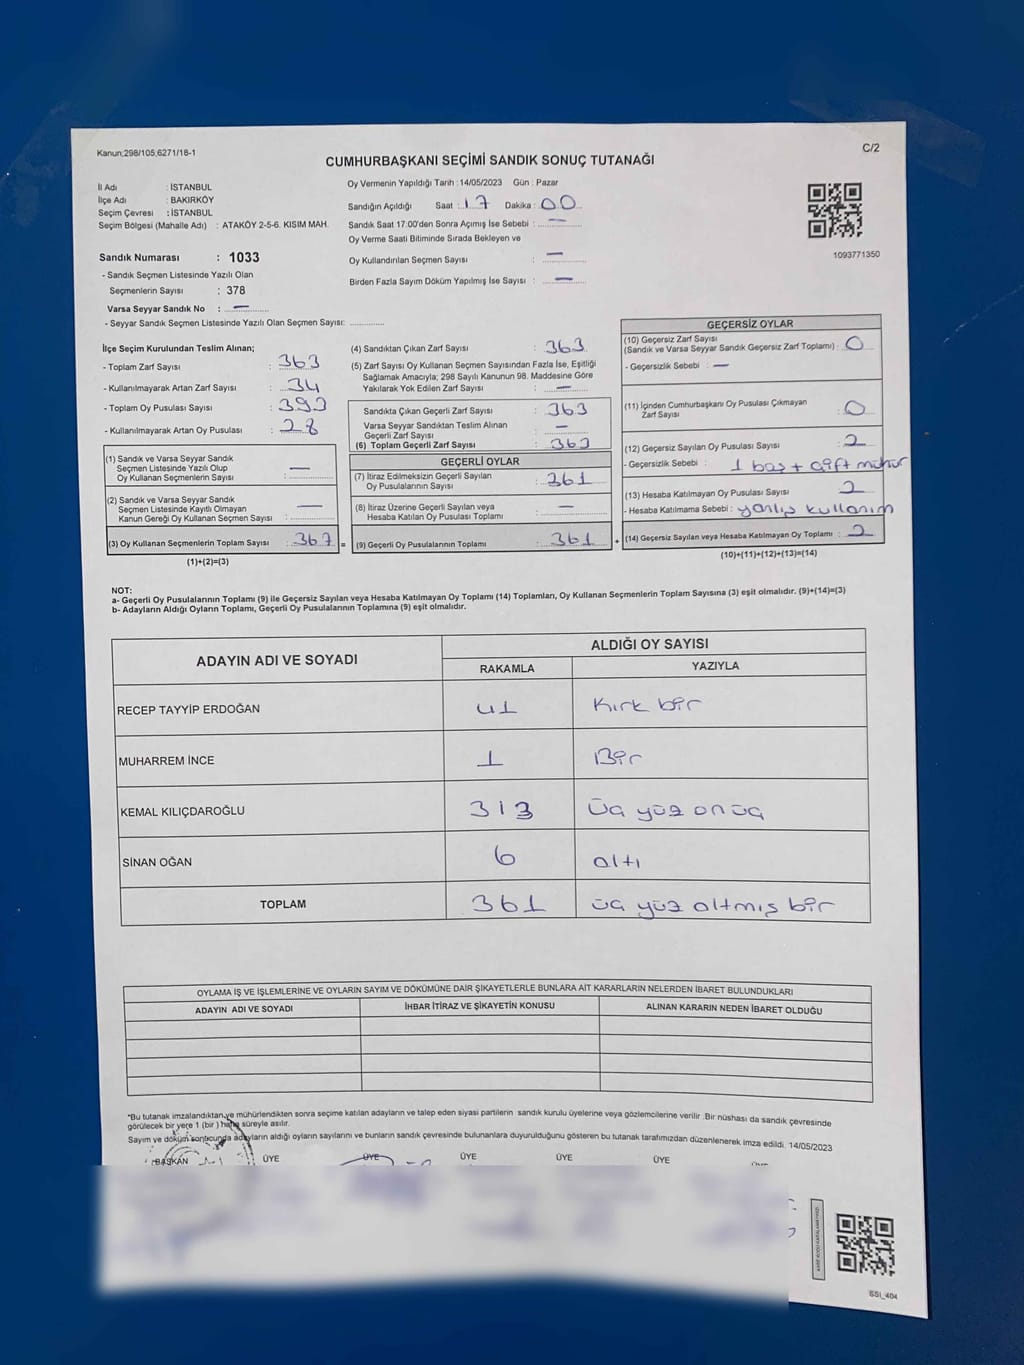 Kanun;298/105,6271/18-1
C/2
CUMHURBAŞKANI SEÇİMİ SANDIK SONUÇ TUTANAĞI
İl Adı : İSTANBUL
İlçe Adı : BAKIRKÖY
Seçim Çevresi : İSTANBUL
Seçim Bölgesi (Mahalle Adı) : ATAKÖY 2-5-6. KISIM MAH.
Sandık Numarası : 1033
- Sandık Seçmen Listesinde Yazılı Olan
Seçmenlerin Sayısı : 378
Varsa Seyyar Sandık No : —
- Seyyar Sandık Seçmen Listesinde Yazılı Olan Seçmen Sayısı:
Oy Vermenin Yapıldığı Tarih : 14/05/2023 Gün : Pazar
Sandığın Açıldığı Saat : 17 Dakika : 00
Sandık Saat 17:00'den Sonra Açımış İse Sebebi : —
Oy Verme Saati Bitiminde Sırada Bekleyen ve
Oy Kullandırılan Seçmen Sayısı : —
Birden Fazla Sayım Döküm Yapılmış İse Sayısı : —
1093771350
İlçe Seçim Kurulundan Teslim Alınan;
- Toplam Zarf Sayısı : 363
- Kullanılmayarak Artan Zarf Sayısı : 34
- Toplam Oy Pusulası Sayısı : 393
- Kullanılmayarak Artan Oy Pusulası : 28
(1) Sandık ve Varsa Seyyar Sandık
Seçmen Listesinde Yazılı Olup
Oy Kullanan Seçmen Sayısı : —
(2) Sandık ve Varsa Seyyar Sandık
Seçmen Listesinde Kayıtlı Olmayan
Kanun Gereği Oy Kullanan Seçmen Sayısı : —
(3) Oy Kullanan Seçmenlerin Toplam Sayısı : 367 =
(1)+(2)=(3)
(4) Sandıktan Çıkan Zarf Sayısı : 363
(5) Zarf Sayısı Oy Kullanan Seçmen Sayısından Fazla İse, Eşitliği
Sağlamak Amacıyla; 298 Sayılı Kanunun 98. Maddesine Göre
Yakılarak Yok Edilen Zarf Sayısı : —
Sandıkta Çıkan Geçerli Zarf Sayısı : 363
Varsa Seyyar Sandıktan Teslim Alınan
Geçerli Zarf Sayısı : —
(6) Toplam Geçerli Zarf Sayısı : 363
GEÇERLİ OYLAR
(7) İtiraz Edilmeksizin Geçerli Sayılan
Oy Pusulalarının Sayısı : 361
(8) İtiraz Üzerine Geçerli Sayılan veya
Hesaba Katılan Oy Pusulası Toplamı : —
(9) Geçerli Oy Pusulalarının Toplamı : 361 +
GEÇERSİZ OYLAR
(10) Geçersiz Zarf Sayısı
(Sandık ve Varsa Seyyar Sandık Geçersiz Zarf Toplamı) : 0
- Geçersizlik Sebebi : —
(11) İçinden Cumhurbaşkanı Oy Pusulası Çıkmayan
Zarf Sayısı : 0
(12) Geçersiz Sayılan Oy Pusulası Sayısı : 2
- Geçersizlik Sebebi : 1 boş + çift mühür
(13) Hesaba Katılmayan Oy Pusulası Sayısı : 2
- Hesaba Katılmama Sebebi : yanlış kullanım
(14) Geçersiz Sayılan veya Hesaba Katılmayan Oy Toplamı : 2
(10)+(11)+(12)+(13)=(14)
NOT:
a- Geçerli Oy Pusulalarının Toplamı (9) ile Geçersiz Sayılan veya Hesaba Katılmayan Oy Toplamı (14) Toplamları, Oy Kullanan Seçmenlerin Toplam Sayısına (3) eşit olmalıdır. (9)+(14)=(3)
b- Adayların Aldığı Oyların Toplamı, Geçerli Oy Pusulalarının Toplamına (9) eşit olmalıdır.
ADAYIN ADI VE SOYADI
ALDIĞI OY SAYISI
RAKAMLA YAZIYLA
RECEP TAYYİP ERDOĞAN 41 Kırk bir
MUHARREM İNCE 1 Bir
KEMAL KILIÇDAROĞLU 313 üç yüz onüç
SİNAN OĞAN 6 altı
TOPLAM 361 üç yüz altmış bir
OYLAMA İŞ VE İŞLEMLERİNE VE OYLARIN SAYIM VE DÖKÜMÜNE DAİR ŞİKAYETLERLE BUNLARA AİT KARARLARIN NELERDEN İBARET BULUNDUKLARI
ADAYIN ADI VE SOYADI İHBAR İTİRAZ VE ŞİKAYETİN KONUSU ALINAN KARARIN NEDEN İBARET OLDUĞU
*Bu tutanak imzalandıktan ve mühürlendikten sonra seçime katılan adayların ve talep eden siyasi partilerin sandık kurulu üyelerine veya gözlemcilerine verilir .Bir nüshası da sandık çevresinde
görülecek bir yere 1 (bir ) hafta süreyle asılır.
Sayım ve döküm sonucunda adayların aldığı oyların sayılarını ve bunların sandık çevresinde bulunanlara duyurulduğunu gösteren bu tutanak tarafımızdan düzenlenerek imza edildi. 14/05/2023
BAŞKAN ÜYE ÜYE ÜYE ÜYE ÜYE
SSİ_404